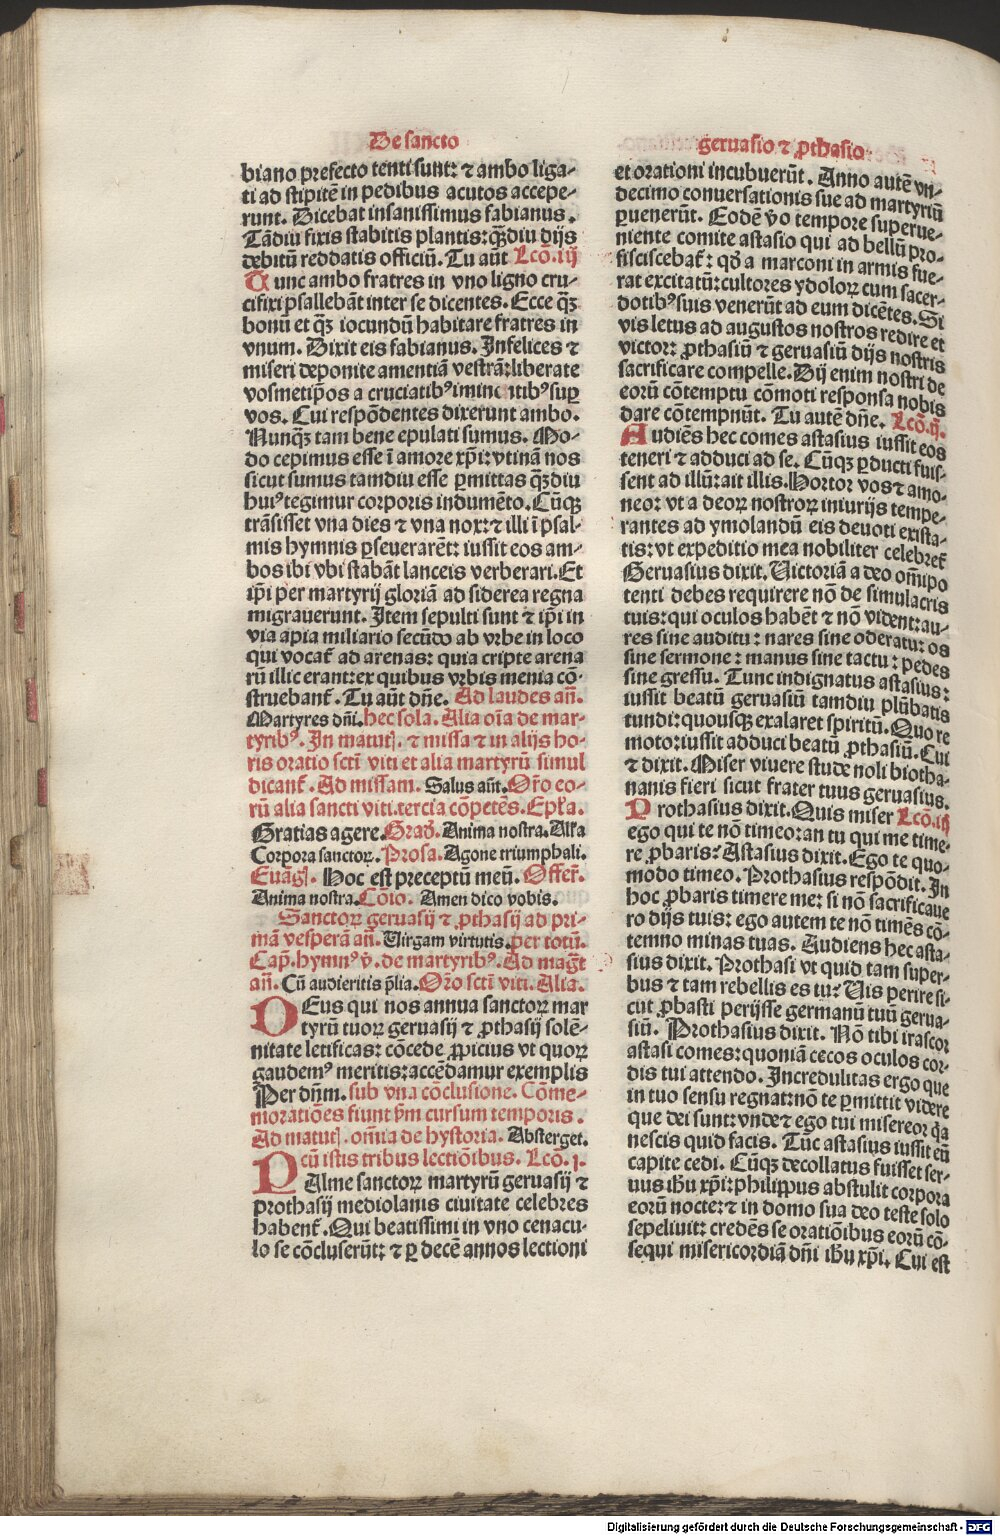 De sancto
biano prefecto tenti sunt: ⁊ ambo liga⸗
ti ad stipitē in pedibus acutos accepe⸗
runt. Dicebat insanissimus fabianus.
Tādiu fixis stabitis plantis: qꝫdiu dijs
debitū reddatis officiū. Tu aūt Lcō. iij
Tunc ambo fratres in vno ligno cru⸗
cifixi psallebāt inter se dicentes. Ecce qꝫ
bonū et qꝫ iocundū habitare fratres in
vnum. Dixit eis fabianus. Infelices ⁊
miseri deponite amentiā vestrā: liberate
vosmetip̄os a cruciatibꝰ iminentibꝰ suꝑ
vos. Cui respōdentes dixerunt ambo.
Nunqꝫ tam bene epulati sumus. Mo⸗
do cepimus esse ī amore xp̄i: vtinā nos
sicut sumus tamdiu esse ꝑmittas qꝫdiu
huiꝰ tegimur corporis indumēto. Cūqꝫ
trāsisset vna dies ⁊ vna nox: ⁊ illi ī psal⸗
mis hymnis ꝑseuerarēt: iussit eos am⸗
bos ibi vbi stabāt lanceis verberari. Et
ip̄i per martyrij gloriā ad siderea regna
migrauerunt. Item sepulti sunt ⁊ ip̄i in
via apia miliario secūdo ab vrbe in loco
qui vocat̄ ad arenas: quia cripte arena
rū illic erant: ex quibus vrbis menia cō⸗
struebant̄. Tu aūt dn̄e. Ad laudes an̄.
Martyres dn̄i. hec sola. Alia oīa de mar⸗
tyribꝰ. In matuꝭ. ⁊ missa ⁊ in alijs ho⸗
ris oratio sctī viti et alia martyrū simul
dicant̄. Ad missam. Salus aūt. Or̄o eo⸗
rū alia sancti viti. tercia cōpetēs. Ep̄la.
Gratias agere. Grad̄. Anima nostra. Alla
Corpora sanctoꝝ. Prosa. Agone triumphali.
Euāgꝭ. Hoc est preceptū meū. Offer̄.
Anima nostra. Cōio. Amen dico vobis.
Sanctoꝝ geruasij ⁊ ꝓthasij ad pri⸗
mā vesperā an̄. Virgam virtutis. per totū.
Cap̄. hymnꝰ v̄. de martyribꝰ. Ad magt̄
an̄. Cū audieritis p̄lia. Or̄o sctī viti. Alia.
DEus qui nos annua sanctoꝝ mar
tyrū tuoꝝ geruasij ⁊ ꝓthasij solē⸗
nitate letificas: cōcede ꝓpicius vt quoꝝ
gaudemꝰ meritis: accēdamur exemplis
Per dn̄m. sub vna cōclusione. Cōme⸗
moratiōes fiunt ẜm cursum temporis.
Ad matuꝭ. omīa de hystoria. Absterget.
cū istis tribus lectiōibus. Lcō. j.
PAlme sanctoꝝ martyrū geruasij ⁊
prothasij mediolanis ciuitate celebres
habent̄. Qui beatissimi in vno cenacu⸗
lo se cōcluserūt: ⁊ ꝑ decē annos lectioni
geruasio ⁊ ꝓthasio
et orationi incubuerūt. Anno autē vn⸗
decimo conuersationis sue ad martyriū
ꝑuenerūt. Eodē v̄o tempore superue⸗
niente comite astasio qui ad bellū pro⸗
fisciscebat̄: qd̄ a marconi in armis fue⸗
rat excitatū: cultores ydoloꝝ cum sacer⸗
dotibꝰ suis venerūt ad eum dicētes. Si
vis letus ad augustos nostros redire et
victor: ꝓthasiū ⁊ geruasiū dijs nostris
sacrificare compelle. Dij enim nostri de
eorū cōtemptu cōmoti responsa nobis
dare cōtempnūt. Tu autē dn̄e. Lcō. ij.
Audiēs hec comes astasius iussit eos
teneri ⁊ adduci ad se. Cūqꝫ ꝑducti fuis⸗
sent ad illū: ait illis. Hortor vos ⁊ amo⸗
neo: vt a deoꝝ nostroꝝ iniurijs tempe⸗
rantes ad ymolandū eis deuoti exista⸗
tis: vt expeditio mea nobiliter celebret̄
Geruasius dixit. Victoriā a deo om̄ipo
tenti debes requirere nō de simulacris
tuis: qui oculos habēt ⁊ nō vident: au⸗
res sine auditu: nares sine oderatu: os
sine sermone: manus sine tactu: pedes
sine gressu. Tunc indignatus astasius:
iussit beatū geruasiū tamdiu plūbatis
tundi: quousqꝫ exalaret spiritū. Quo re
moto: iussit adduci beatū ꝓthasiū. Cui
⁊ dixit. Miser viuere stude noli biotha⸗
nanis fieri sicut frater tuus geruasius.
Prothasius dixit. Quis miser Lcō. iij
ego qui te nō timeo: an tu qui me time⸗
re ꝓbaris? Astasius dixit. Ego te quo⸗
modo timeo. Prothasius respōdit. In
hoc ꝓbaris timere me: si nō sacrificaue
ro dijs tuis: ego autem te nō timēs cō⸗
temno minas tuas. Audiens hec asta⸗
sius dixit. Prothasi vt quid tam super⸗
bus ⁊ tam rebellis es tu? Vis perire si⸗
cut ꝓbasti perijsse germanū tuū gerua⸗
siū. Prothasius dixit. Nō tibi irascor
astasi comes: quoniā cecos oculos cor⸗
dis tui attendo. Incredulitas ergo que
in tuo sensu regnat: nō te ꝑmittit videre
que dei sunt: vnde ⁊ ego tui misereor qa
nescis quid facis. Tūc astasius iussit eū
capite cedi. Cūqꝫ decollatus fuisset ser⸗
uus ihu xp̄i: philippus abstulit corpora
eorū nocte: ⁊ in domo sua deo teste solo
sepeliuit: credēs se oratiōibus eorū cō⸗
sequi misericordiā dn̄i ihu xp̄i. Cui est
Digitalisierung gefördert durch die Deutsche Forschungsgemeinschaft - DFG